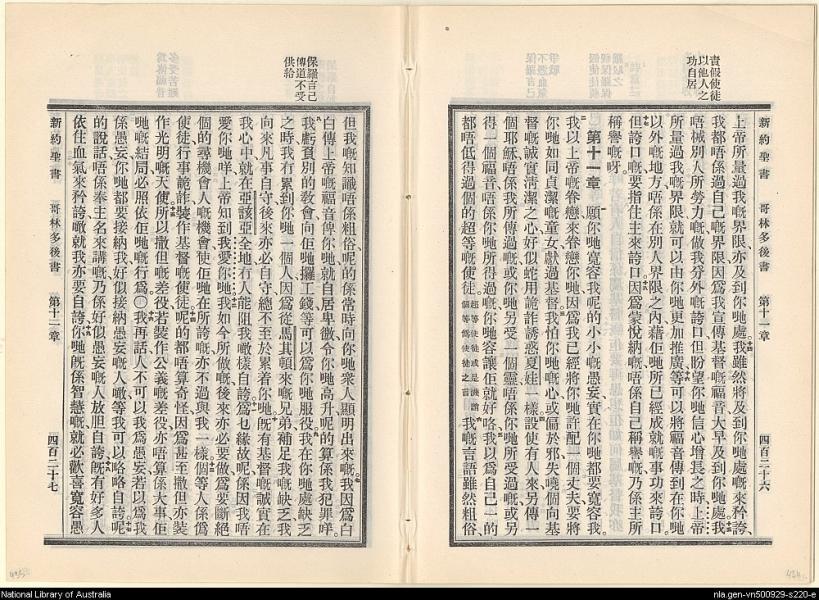 責假使徒
以他人之
功自居
新約聖書 哥林多後書 第十一章 四百二十六
上帝所量過我嘅界限、亦及到你哋處我雖然將及到你哋處嘅來矜誇、
我都唔係過自己嘅界限因爲我宣傳基督嘅福音大早及到你哋處我
唔械別人所勞力嘅做我分外嘅誇口但盼望你哋信心增長之時上帝
所量過我嘅界限就可以由你哋更加推廣等可以將福音傳到在你哋
以外嘅地方唔係在別人界限之內藉佢哋所已經成就嘅事功來誇口。
但誇口嘅要指住主來誇口因爲蒙悅納嘅唔係自己稱譽嘅乃係主所
稱譽嘅呀。
第十一章 願你哋寬容我呢的小小嘅愚妄實在你哋都要寬容我。
我以上帝嘅眷戀來眷戀你哋因爲我已經將你哋許配一個丈夫要將
你哋如同貞潔嘅童女獻過基督我怕你哋嘅心或偏於邪失嘵個向基
督嘅誠實淸潔之心好似蛇用詭詐誘惑夏娃一樣設使有人來另傳一
個耶穌唔係我所傳過嘅或你哋另受一個靈唔係你哋所受過嘅或另
得一個福音唔係你哋所得過嘅你哋容讓佢就好咯我以爲自己一的
都唔低得過個的超等嘅使徒。我嘅言語雖然粗俗、
保羅言己
傳道不受
供給
但我嘅知識唔係粗俗呢的係常時向你哋衆人顯明出來嘅我因爲白
白傳上帝嘅福音俾你哋就自居卑微令你哋高升呢的算係我犯罪咩。
我虧負別的教會向佢哋攞工錢等可以爲你哋服役我在你哋處缺乏
之時我冇累到你哋一個人因爲從馬其頓來嘅兄弟補足我嘅缺乏我
向來凡事自守後來亦必自守總不至於累着你哋旣有基督嘅誠實在
我心中就在亞該亞全地冇人能阻我噉樣自誇爲乜緣故呢係因我唔
愛你哋咩上帝知到我愛你哋我如今所做嘅後來亦必要做爲要斷絕
個的尋機會人嘅機會使佢哋在所誇嘅亦不過與我一樣個等人係僞
使徒行事詭詐裝作基督嘅使徒呢的都唔算奇怪因爲甚至撒但亦裝
作光明嘅天使所以撒但嘅差役若裝作公義嘅差役亦唔算係大事佢
哋嘅結局必照依佢哋嘅行爲〇我再話人不可以我爲愚妄若以爲我
係愚妄你哋都要接納我好似接納愚妄嘅人噉等我可以略略自誇呢
的說話唔係奉主名來講嘅乃係好似愚妄嘅人放胆自誇旣有好多人
依住血氣來矜誇噉就我亦要自誇你哋旣係智慧嘅就必歡喜寬容愚
新約聖書 哥林多後書 第十一章 四百二十七
National Library of Australia
nla.gen-vn500929-s220-e